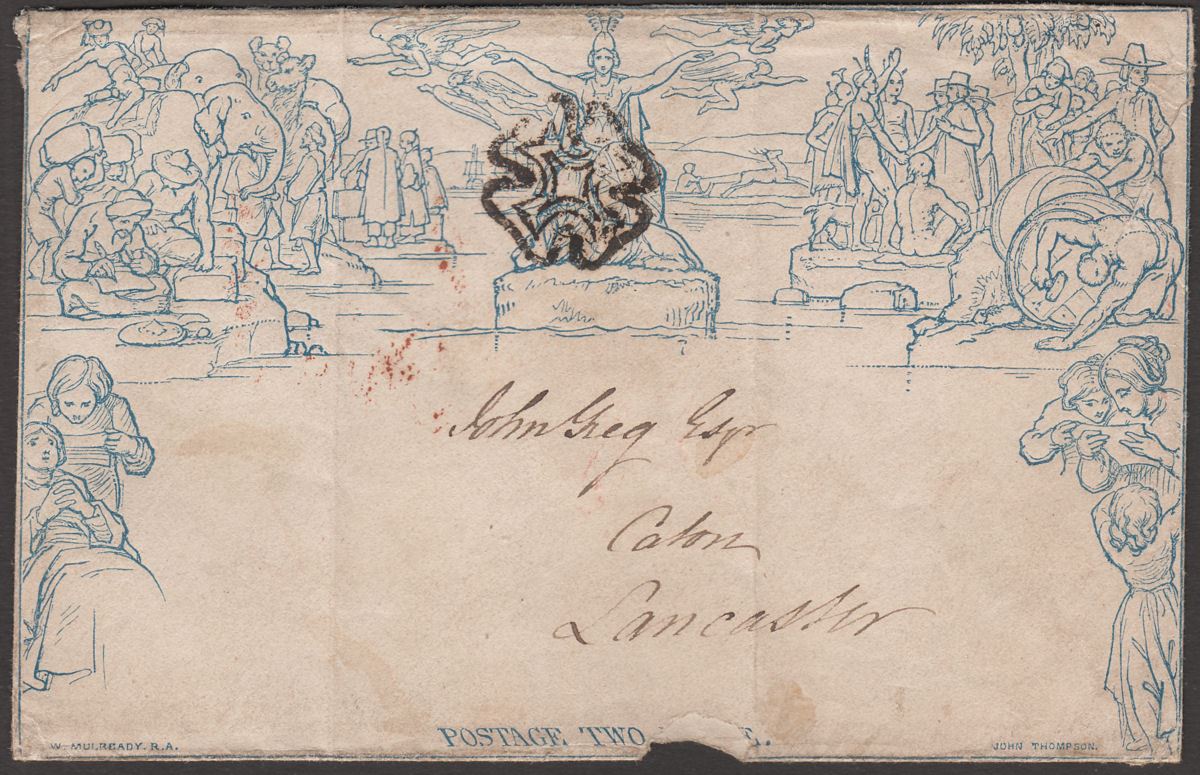 John Greg Esqr
Caton
Lancaster
POSTAGE TWO E.
W. MULREADY. R.A.
JOHN THOMPSON.